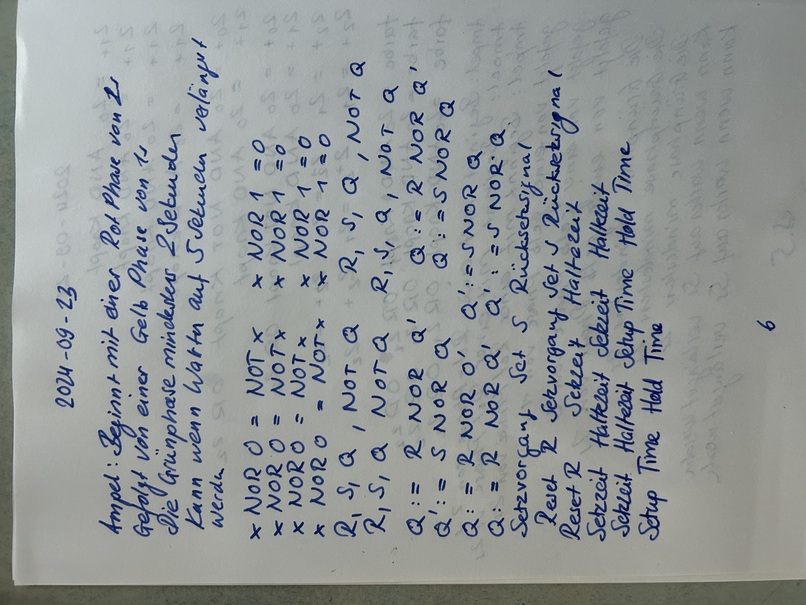 2024-09-23
Ampel: Beginnt mit einer Rot Phase von 2s
Gefolgt von einer Gelb Phase von 1s
Die Grünphase mindestens 2 Sekunden
Kann wenn Warten auf 5 Sekunden verlängert
werden
x NOR 0 = NOT x x NOR 1 = 0
x NOR 0 = NOT x x NOR 1 = 0
x NOR 0 = NOT x x NOR 1 = 0
x NOR 0 = NOT x x NOR 1 = 0
R, S, Q, NOT Q R, S, Q, NOT Q
R, S, Q, NOT Q R, S, Q, NOT Q
Q := R NOR Q' Q := R NOR Q'
Q' := S NOR Q Q := S NOR Q
Q := R NOR Q' Q' := S NOR Q
Q := R NOR Q' Q' := S NOR Q
Setzvorgang Set S Rücksetzsignal
Reset R Setzvorgang Set S Rücksetzsignal
Reset R Setzzeit Haltezeit
Setzzeit Haltezeit Setzzeit Haltezeit
Setzzeit Haltezeit Setup Time Hold Time
Setup Time Hold Time
6